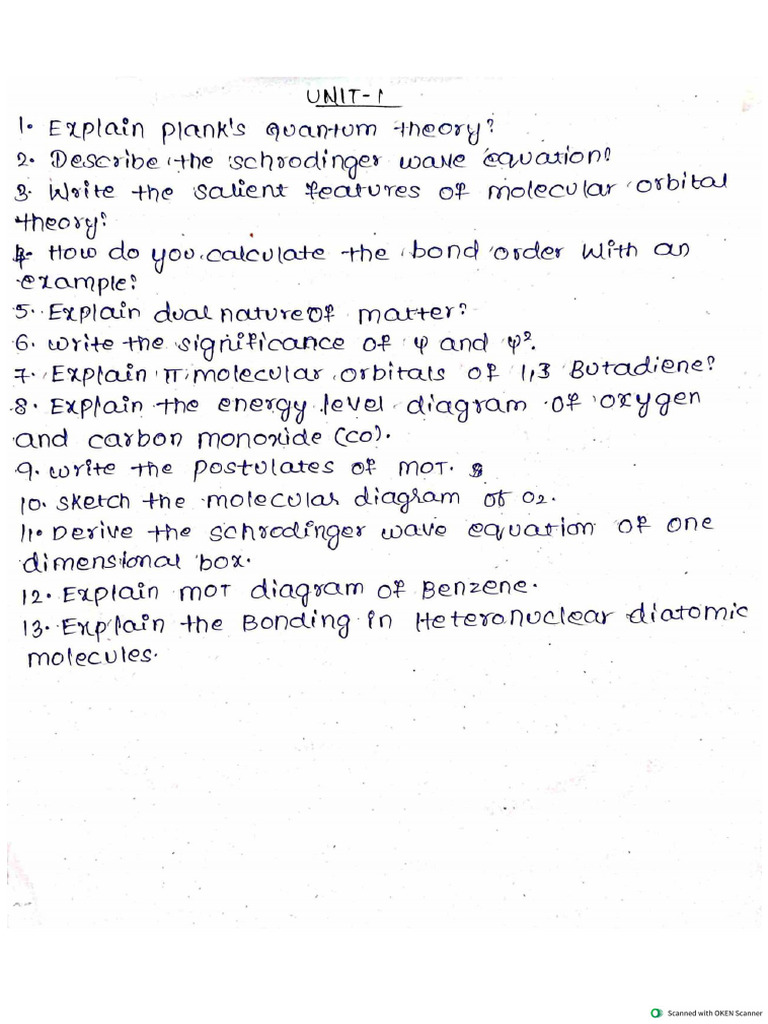 UNIT-1
1. Explain plank's quantum theory?
2. Describe the schrodinger wave equation?
3. Write the salient features of molecular orbital
theory?
4. How do you calculate the bond order with an
example?
5. Explain dual nature of matter?
6. write the significance of ψ and ψ².
7. Explain π molecular orbitals of 1,3 Butadiene?
8. Explain the energy level diagram of oxygen
and carbon monoxide (CO).
9. write the postulates of MOT.
10. sketch the molecular diagram of O2.
11. Derive the schrodinger wave equation of one
dimensional box.
12. Explain MOT diagram of Benzene.
13. Explain the Bonding in Heteronuclear diatomic
molecules.
Scanned with OKEN Scanner